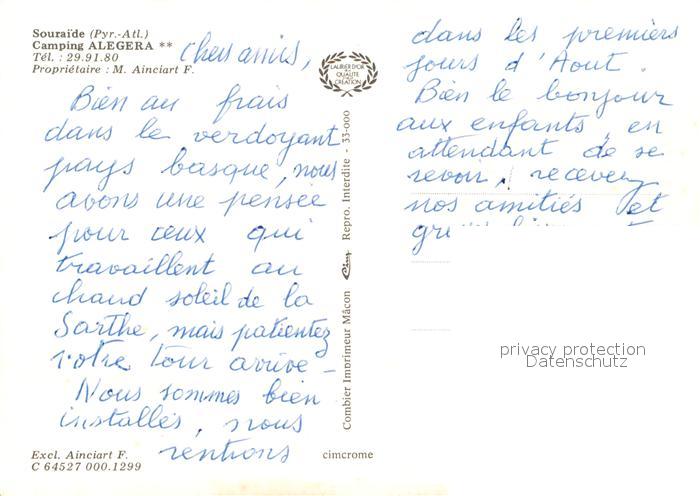 Souraïde (Pyr.-Atl.)
Camping ALEGERA **
Tél. : 29.91.80
Propriétaire : M. Ainciart F.
Chers amis,
Bien au frais
dans le verdoyant
pays basque, nous
avons une pensée
pour ceux qui
travaillent au
chaud soleil de la
Sarthe, mais patientez
votre tour arrive -
Nous sommes bien
installés, nous
rentrons
Excl. Ainciart F.
C 64527 000.1299
LAURIER D'OR
DE LA
QUALITÉ
CRÉATION
Combier Imprimeur Mâcon Cim Repro. Interdite - 33-000
cimcrome
dans les premiers
jours d'Aout.
Bien le bonjour
aux enfants, en
attendant de se
revoir, recevez
nos amitiés et
privacy protection
Datenschutz